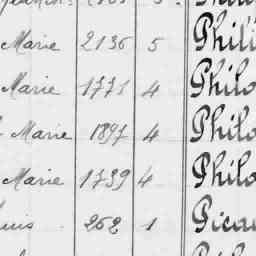 Marie 2136 5 Phili
Marie 1771 4 Philo
Marie 1897 4 Philo
Marie 1739 4 Philo
uis 262 1 Picau